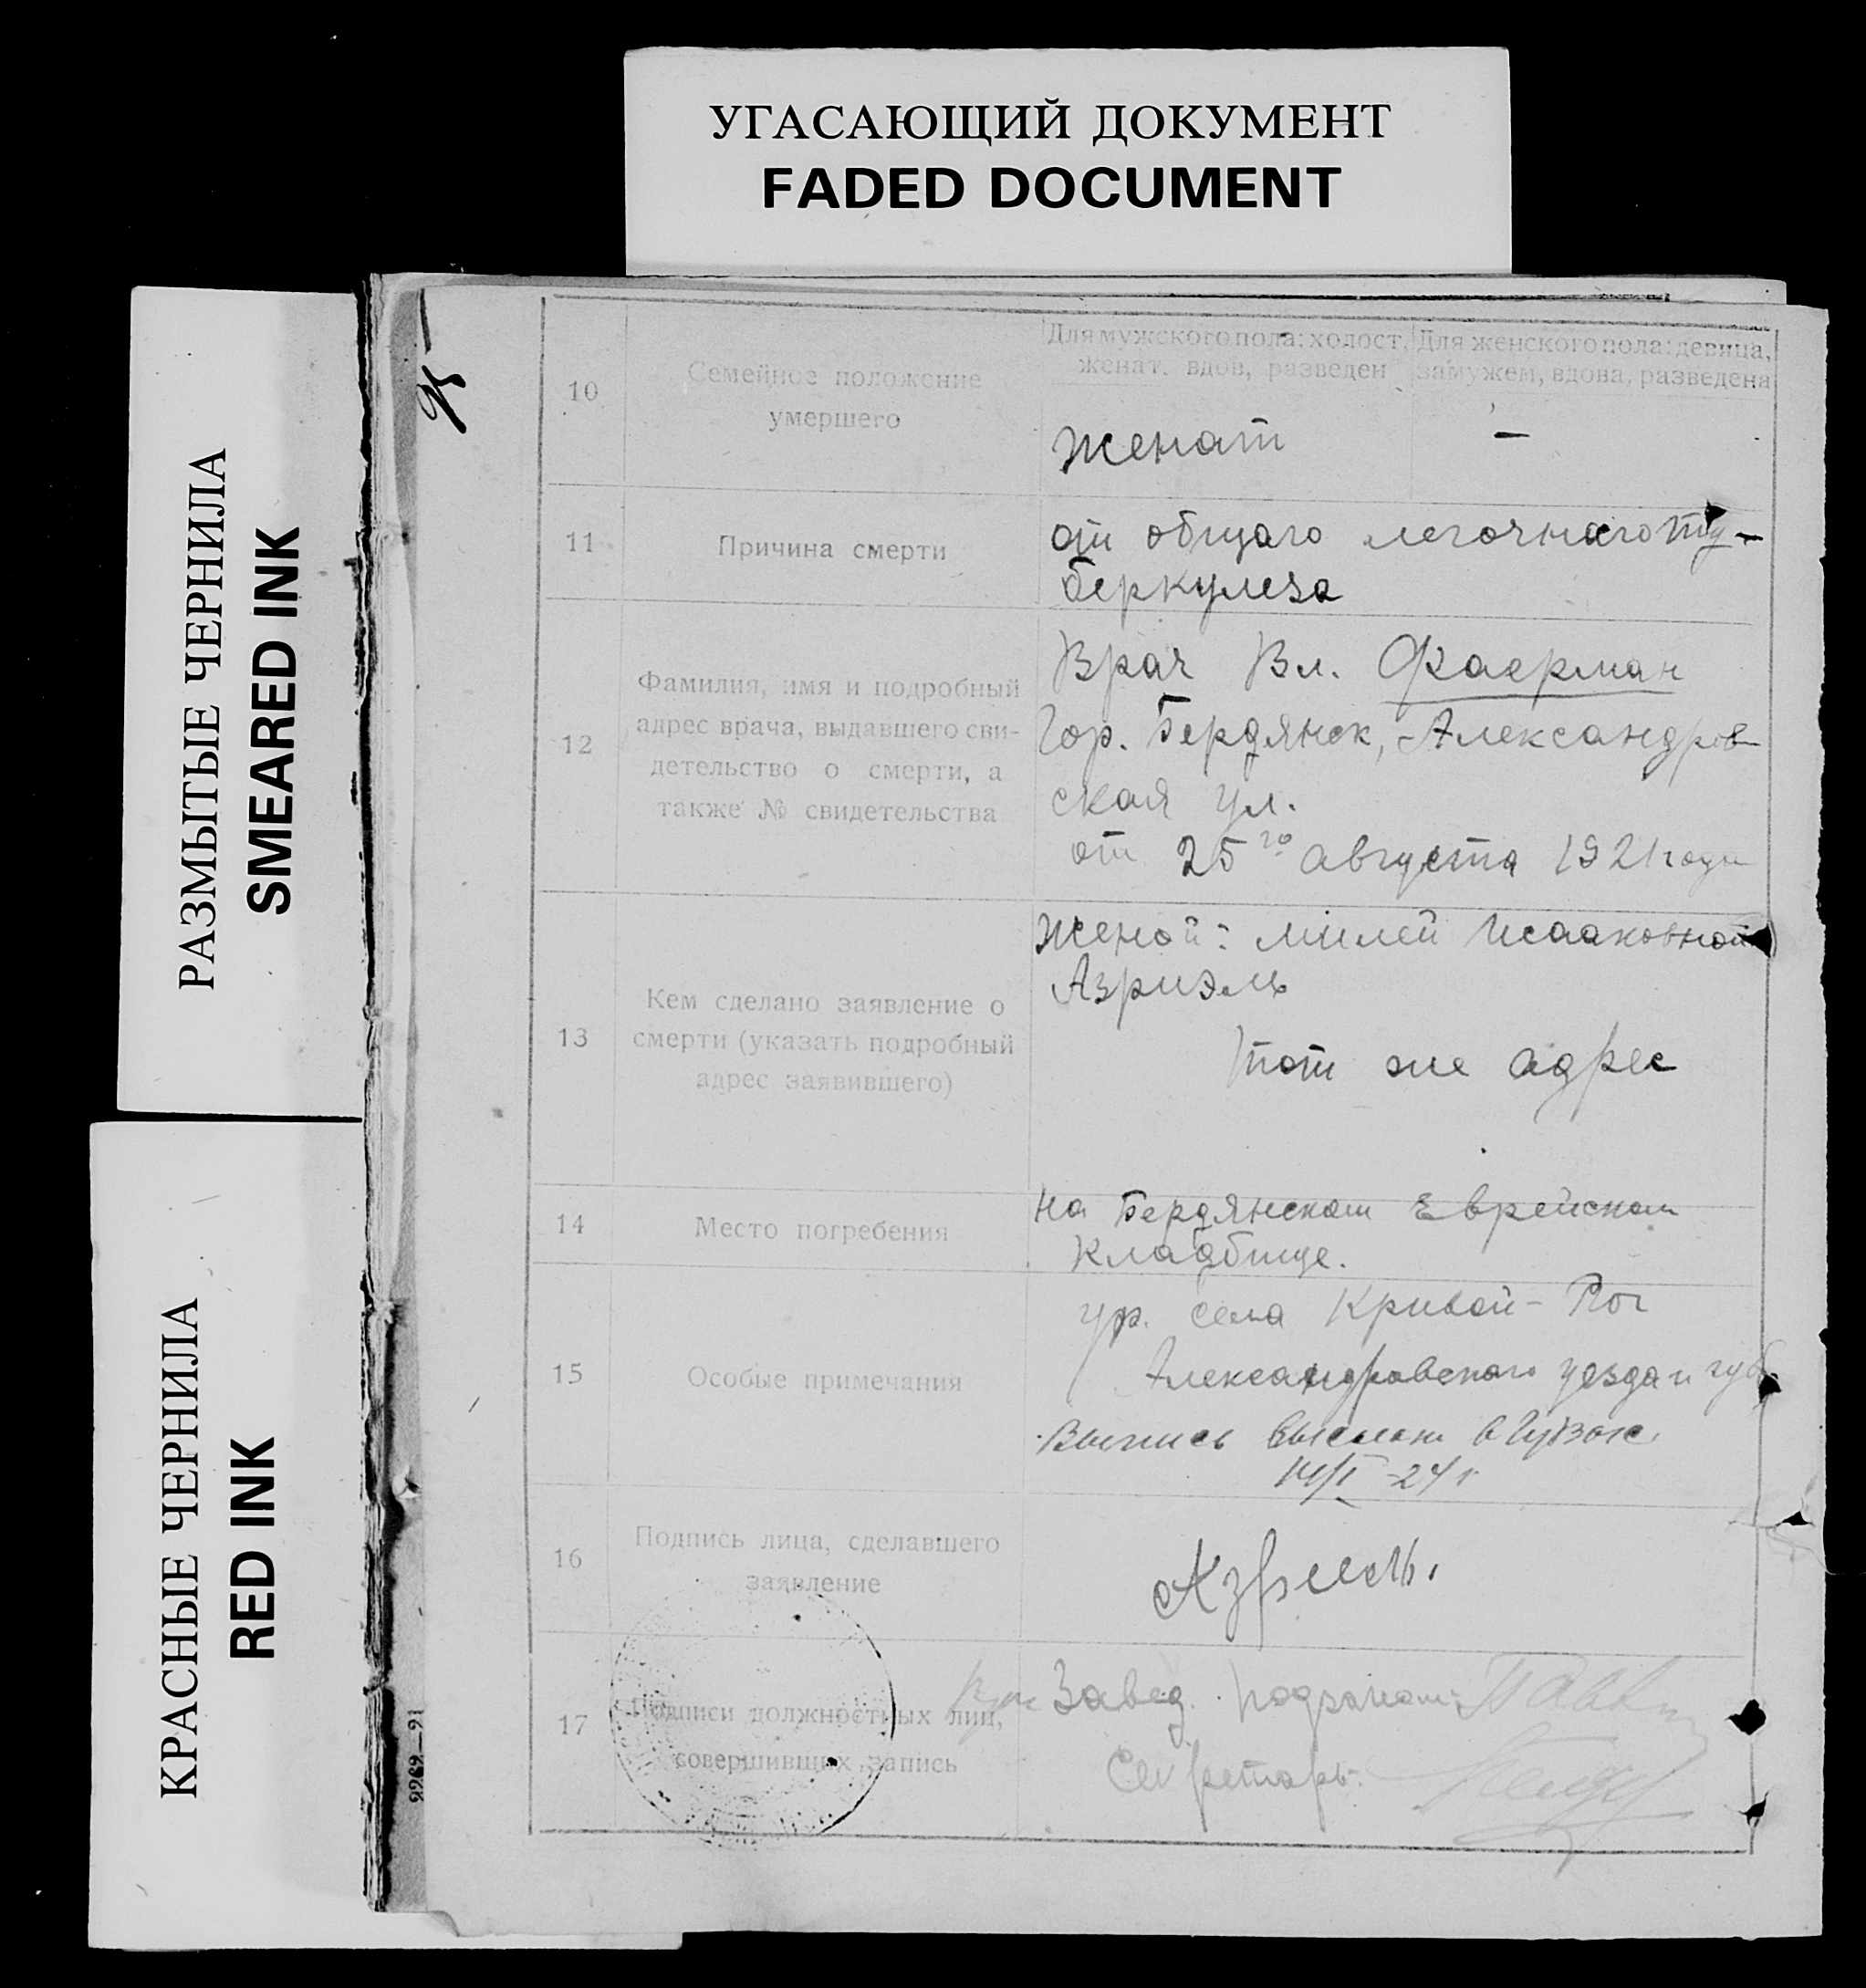 УГАСАЮЩИЙ ДОКУМЕНТ
FADED DOCUMENT
РАЗМЫТЫЕ ЧЕРНИЛА
SMEARED INK
КРАСНЫЕ ЧЕРНИЛА
RED INK
95
10
Семейное положение
умершего
Для мужского пола: холост,
женат, вдов, разведен
Для женского пола: девица,
замужем, вдова, разведена
Женат
—
11
Причина смерти
от общаго легочнаго ту-
беркулеза
12
Фамилия, имя и подробный
адрес врача, выдавшего сви-
детельство о смерти, а
также № свидетельства
Врач Вл. Фаерман
Гор. Бердянск, Александров
ская ул.
от 25го августа 1921 года
13
Кем сделано заявление о
смерти (указать подробный
адрес заявившего)
Женой: Милей Исааковной
Азриэль
Тот же адрес
14
Место погребения
На Бердянском Еврейском
Кладбище.
15
Особые примечания
ур. села Кривой-Рог
Александровского уезда и губ.
Выпись выслана в
14/I -24 г
16
Подпись лица, сделавшего
заявление
Азриель.
17
Подписи должностных лиц,
совершивших запись
Завед. подзагсом:
Секретарь:
9269_91